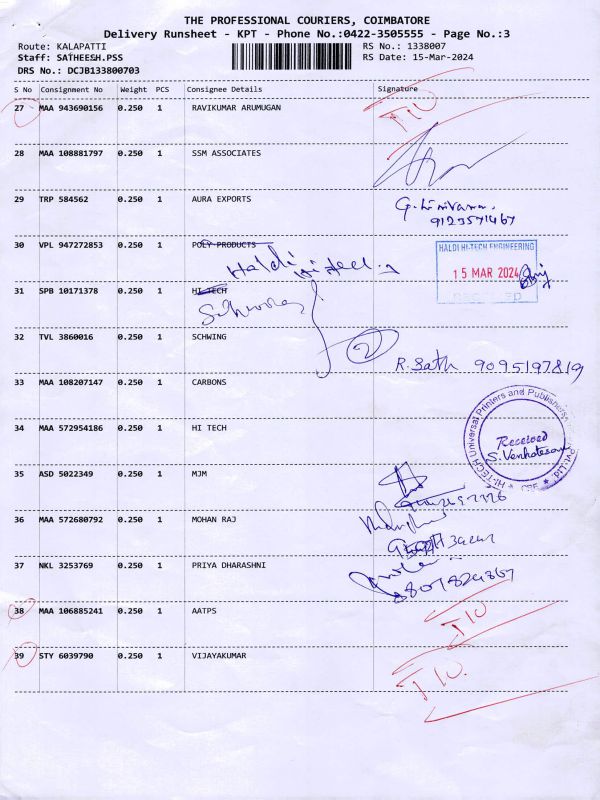 THE PROFESSIONAL COURIERS, COIMBATORE
Delivery Runsheet - KPT - Phone No.:0422-3505555 - Page No.:3
Route: KALAPATTI RS No.: 1338007
Staff: SATHEESH.PSS RS Date: 15-Mar-2024
DRS No.: DCJB133800703
S No Consignment No Weight PCS Consignee Details Signature
27 MAA 943690156 0.250 1 RAVIKUMAR ARUMUGAN
28 MAA 108881797 0.250 1 SSM ASSOCIATES
29 TRP 584562 0.250 1 AURA EXPORTS
9123571467
30 VPL 947272853 0.250 1 POLY PRODUCTS
Haldi Hi Tech
HALDI HI-TECH ENGINEERING
15 MAR 2024
31 SPB 10171378 0.250 1 HI-TECH
32 TVL 3860016 0.250 1 SCHWING
2
R. Sath 9095197819
33 MAA 108207147 0.250 1 CARBONS
34 MAA 572954186 0.250 1 HI TECH
HI-TECH Universal Printers and Publishers Pvt.Ltd
Received
S. Venkatesan
CBE
35 ASD 5022349 0.250 1 MJM
36 MAA 572680792 0.250 1 MOHAN RAJ
37 NKL 3253769 0.250 1 PRIYA DHARASHNI
38 MAA 106885241 0.250 1 AATPS
39 STY 6039790 0.250 1 VIJAYAKUMAR